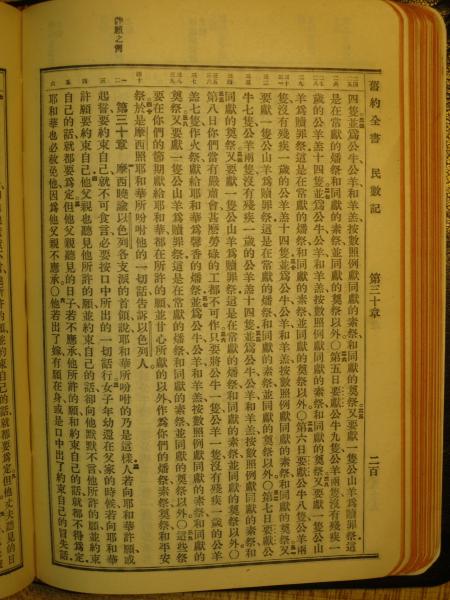 舊約全書 民數記 第三十章 二百
四隻並爲公牛公羊和羊羔按數照例獻同獻的素祭和同獻的奠祭又要獻一隻公山羊爲贖罪祭這
是在常獻的燔祭和同獻的素祭並同獻的奠祭以外○第五日要獻公牛九隻公羊兩隻沒有殘疾一
歲的公羊羔十四隻並爲公牛公羊和羊羔按數照例獻同獻的素祭和同獻的奠祭又要獻一隻公山
羊爲贖罪祭這是在常獻的燔祭和同獻的素祭並同獻的奠祭以外○第六日要獻公牛八隻公羊兩
隻沒有殘疾一歲的公羊羔十四隻並爲公牛公羊和羊羔按數照例獻同獻的素祭和同獻的奠祭又
要獻一隻公山羊爲贖罪祭這是在常獻的燔祭和同獻的素祭並同獻的奠祭以外○第七日要獻公
牛七隻公羊兩隻沒有殘疾一歲的公羊羔十四隻並爲公牛公羊和羊羔按數照例獻同獻的素祭和
同獻的奠祭又要獻一隻公山羊爲贖罪祭這是在常獻的燔祭和同獻的素祭並同獻的奠祭以外○
第八日你們當有嚴肅會甚麼勞碌的工都不可作只要將公牛一隻公羊一隻沒有殘疾一歲的公羊
羔七隻作火祭獻給耶和華爲馨香的燔祭並爲公牛公羊和羊羔按數照例獻同獻的素祭和同獻的
奠祭又要獻一隻公山羊爲贖罪祭這是在常獻的燔祭和同獻的素祭並同獻的奠祭以外○這些祭
要在你們的節期獻給耶和華都在所許的願並甘心所獻的以外作爲你們的燔祭素祭奠祭和平安
祭於是摩西照耶和華所吩咐他的一切話告訴以色列人
第三十章 摩西曉諭以色列各支派的首領說耶和華所吩咐的乃是這樣人若向耶和華許願或
起誓要約束自己就不可食言必要按口中所出的一切話行女子年幼還在父家的時候若向耶和華
許願要約束自己他父親也聽見他所許的願並約束自己的話卻向他默默不言他所許的願並約束
自己的話就都要爲定但他父親聽見的日子若不應承他所許的願和約束自己的話就都不得爲定
耶和華也必赦免他因爲他父親不應承○他若出了嫁有願在身或是口中出了約束自己的冒失話
許願之例